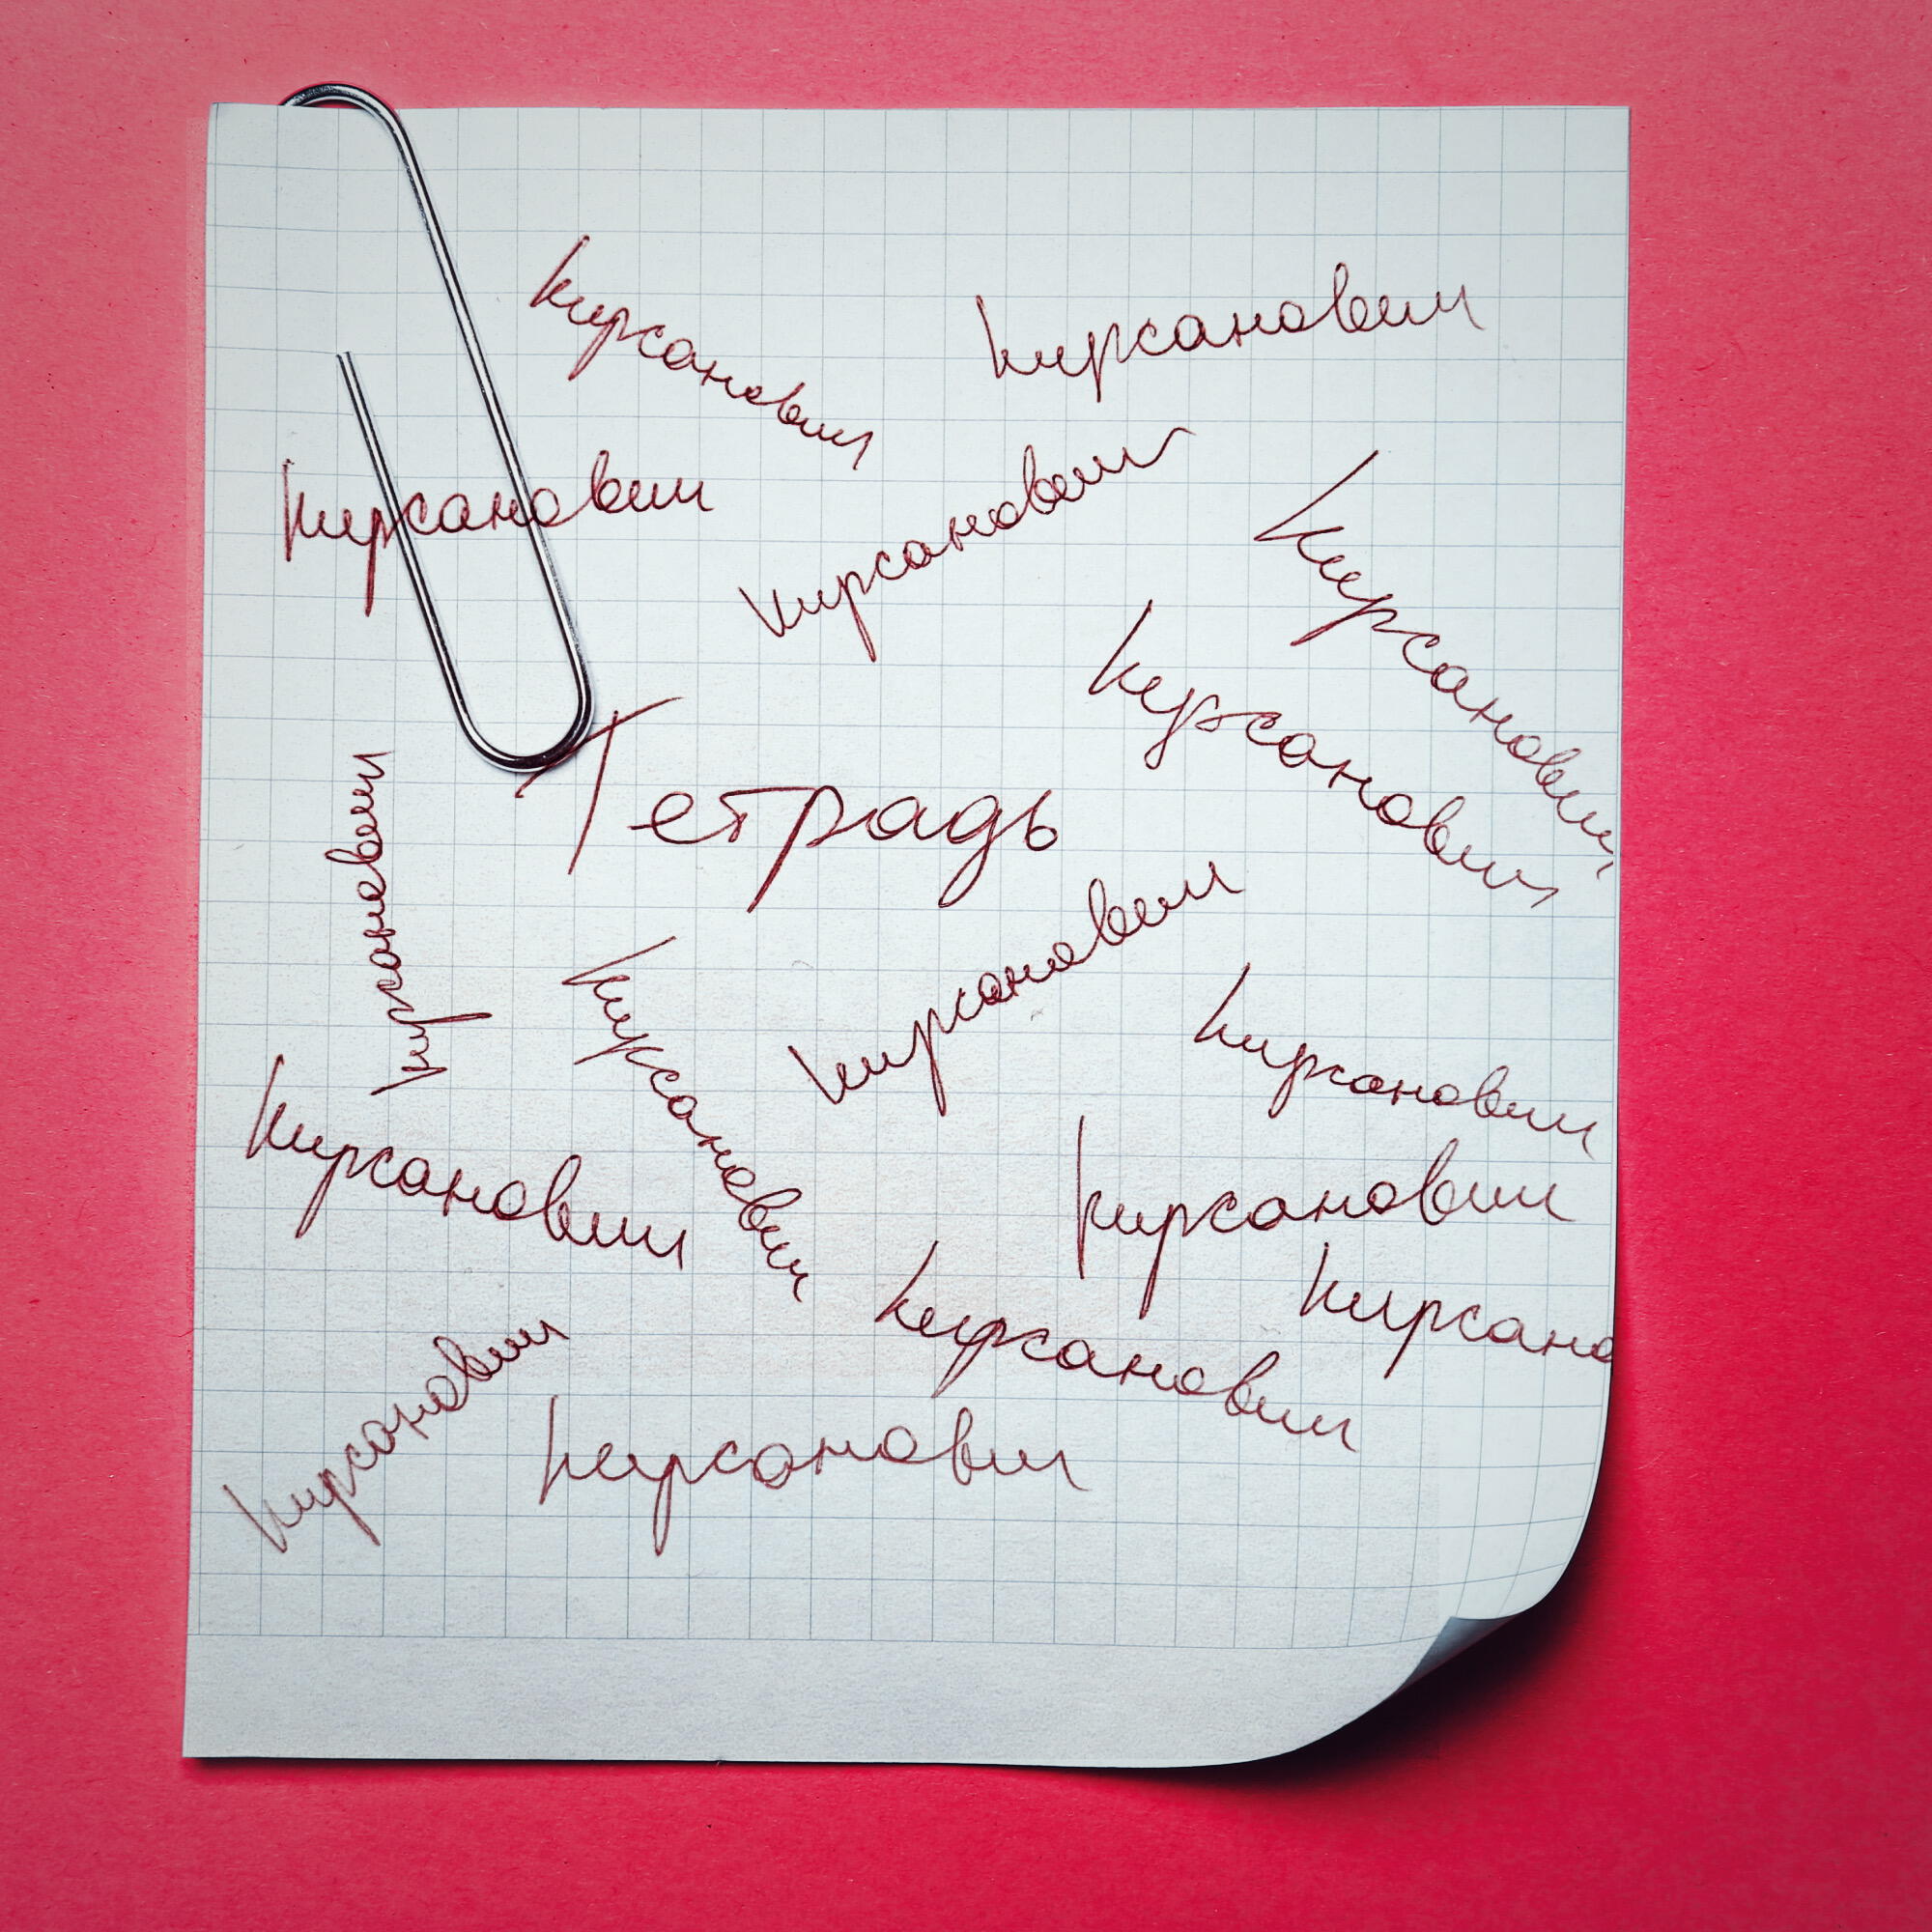 Кирсанович
Кирсанович
Кирсанович
Кирсанович
Кирсанович
Кирсанович
Тетрадь
Кирсанович
Кирсанович
Кирсанович
Кирсанович
Кирсанович
Кирсанович
Кирсано
Кирсанович
Кирсанович
Кирсанович